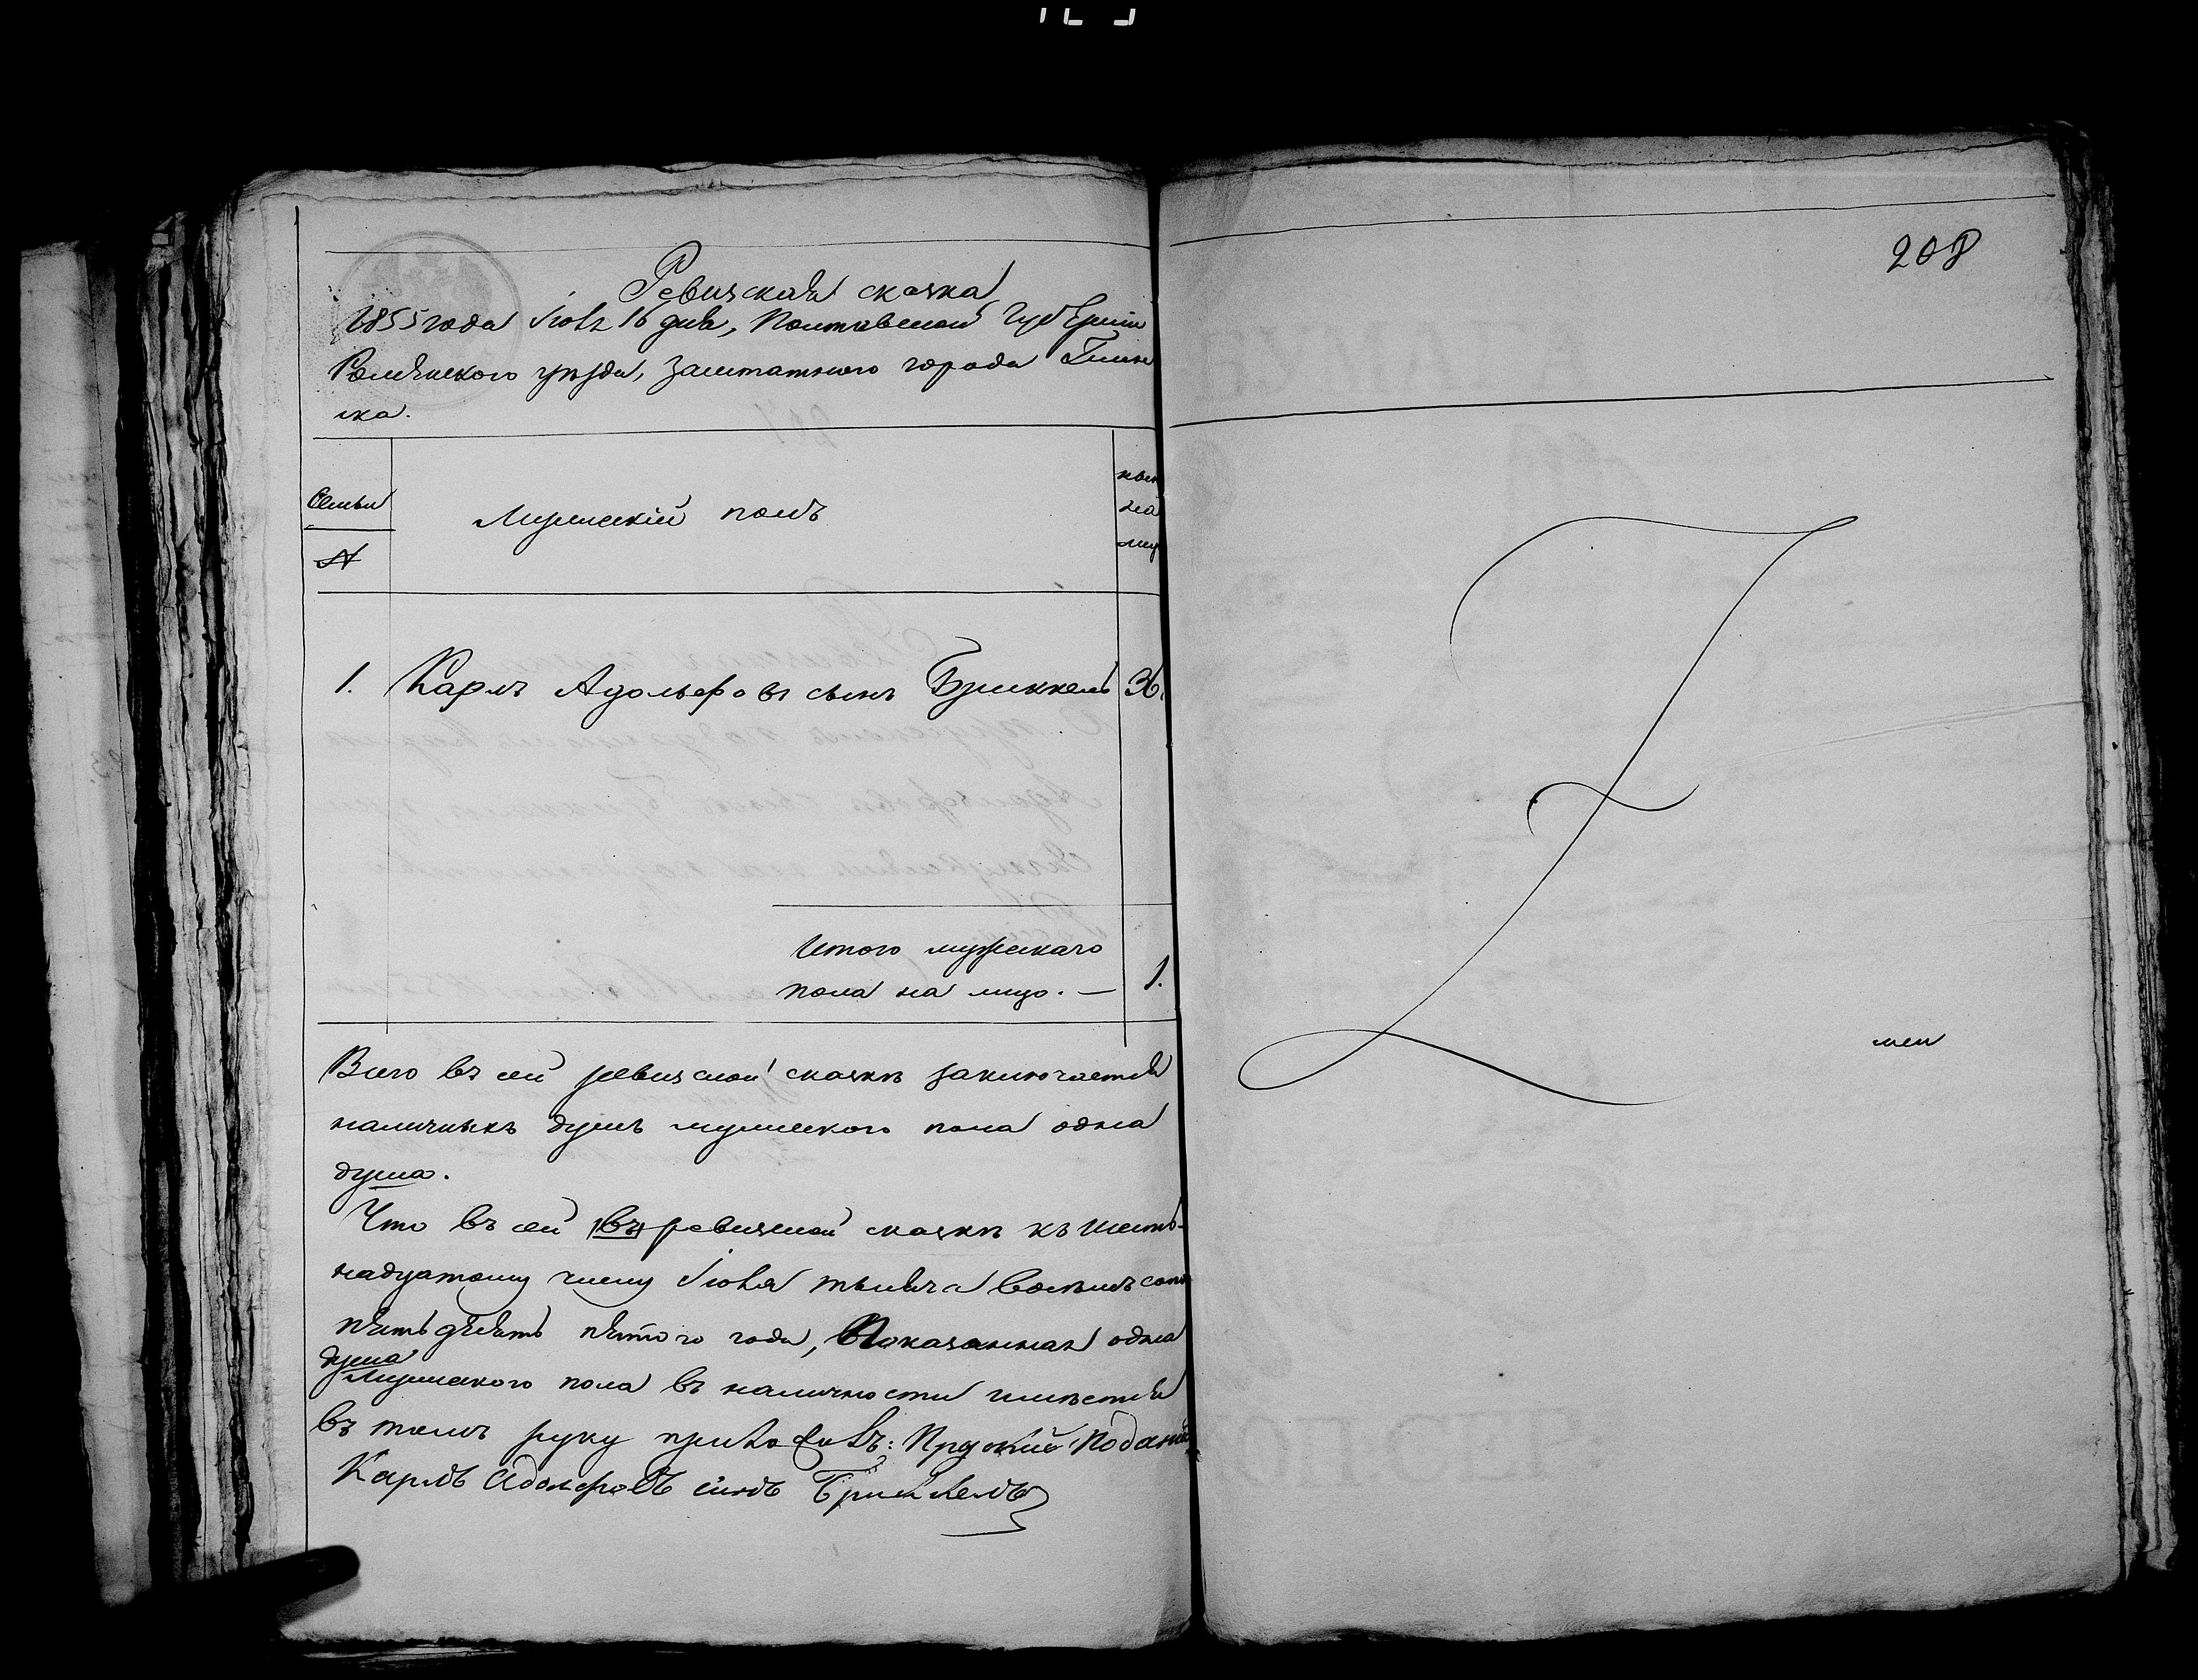 Ревизская сказка
1855 года Іюля 16 дня, Полтавской Губерніи
Роменского уѣзда, заштатного города Глин
ска.
208
Семьи
№
Мужескій полъ
ныи
на
1. Карлъ Адольфовъ сынъ Бриккель 36.
Итого мужескаго
пола на лицо. — 1.
Всего въ сей ревизской сказкѣ заключается
наличныхъ душъ мужеского пола одна
душа.
Что въ сей въ ревизской сказкѣ къ шест-
надцатому числу Іюля тысяча восемь сотъ
пятьдесятъ пятого года, Показанная одна
душа
Мужеского пола въ наличности имѣется
въ томъ руку приложивъ: Пруский Поданый
Карлъ Адольфовъ синъ Бриккель